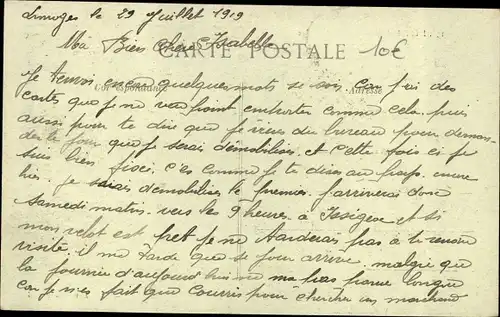 Limoges le 29 Juillet 1919
Ma Bien chère Isabelle
CARTE POSTALE
10€
Correspondance
Adresse
Je encore quelques mots se soir car j'ai des
cartes que je ne veux point emporter comme cela, puis
aussi pour te dire que je viens du bureau pour deman-
der le jour que je serai démobiliser, et cette fois ci je
suis bien fixé, c'es comme je te disai au encore
hier, je serais démobiliser le premier, j'arriverai donc
samedi matin vers les 9 heures à Issigeac et si
mon velot est pret je ne tarderai pas à te rendre
visite, il me tarde que se jour arrive, malgré que
la journée d'aujourd'hui ne ma pas parue longue
car je n'es fait que courrir pour chercher un marchand